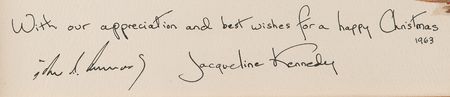 With our appreciation and best wishes for a happy Christmas
1963
Jacqueline Kennedy